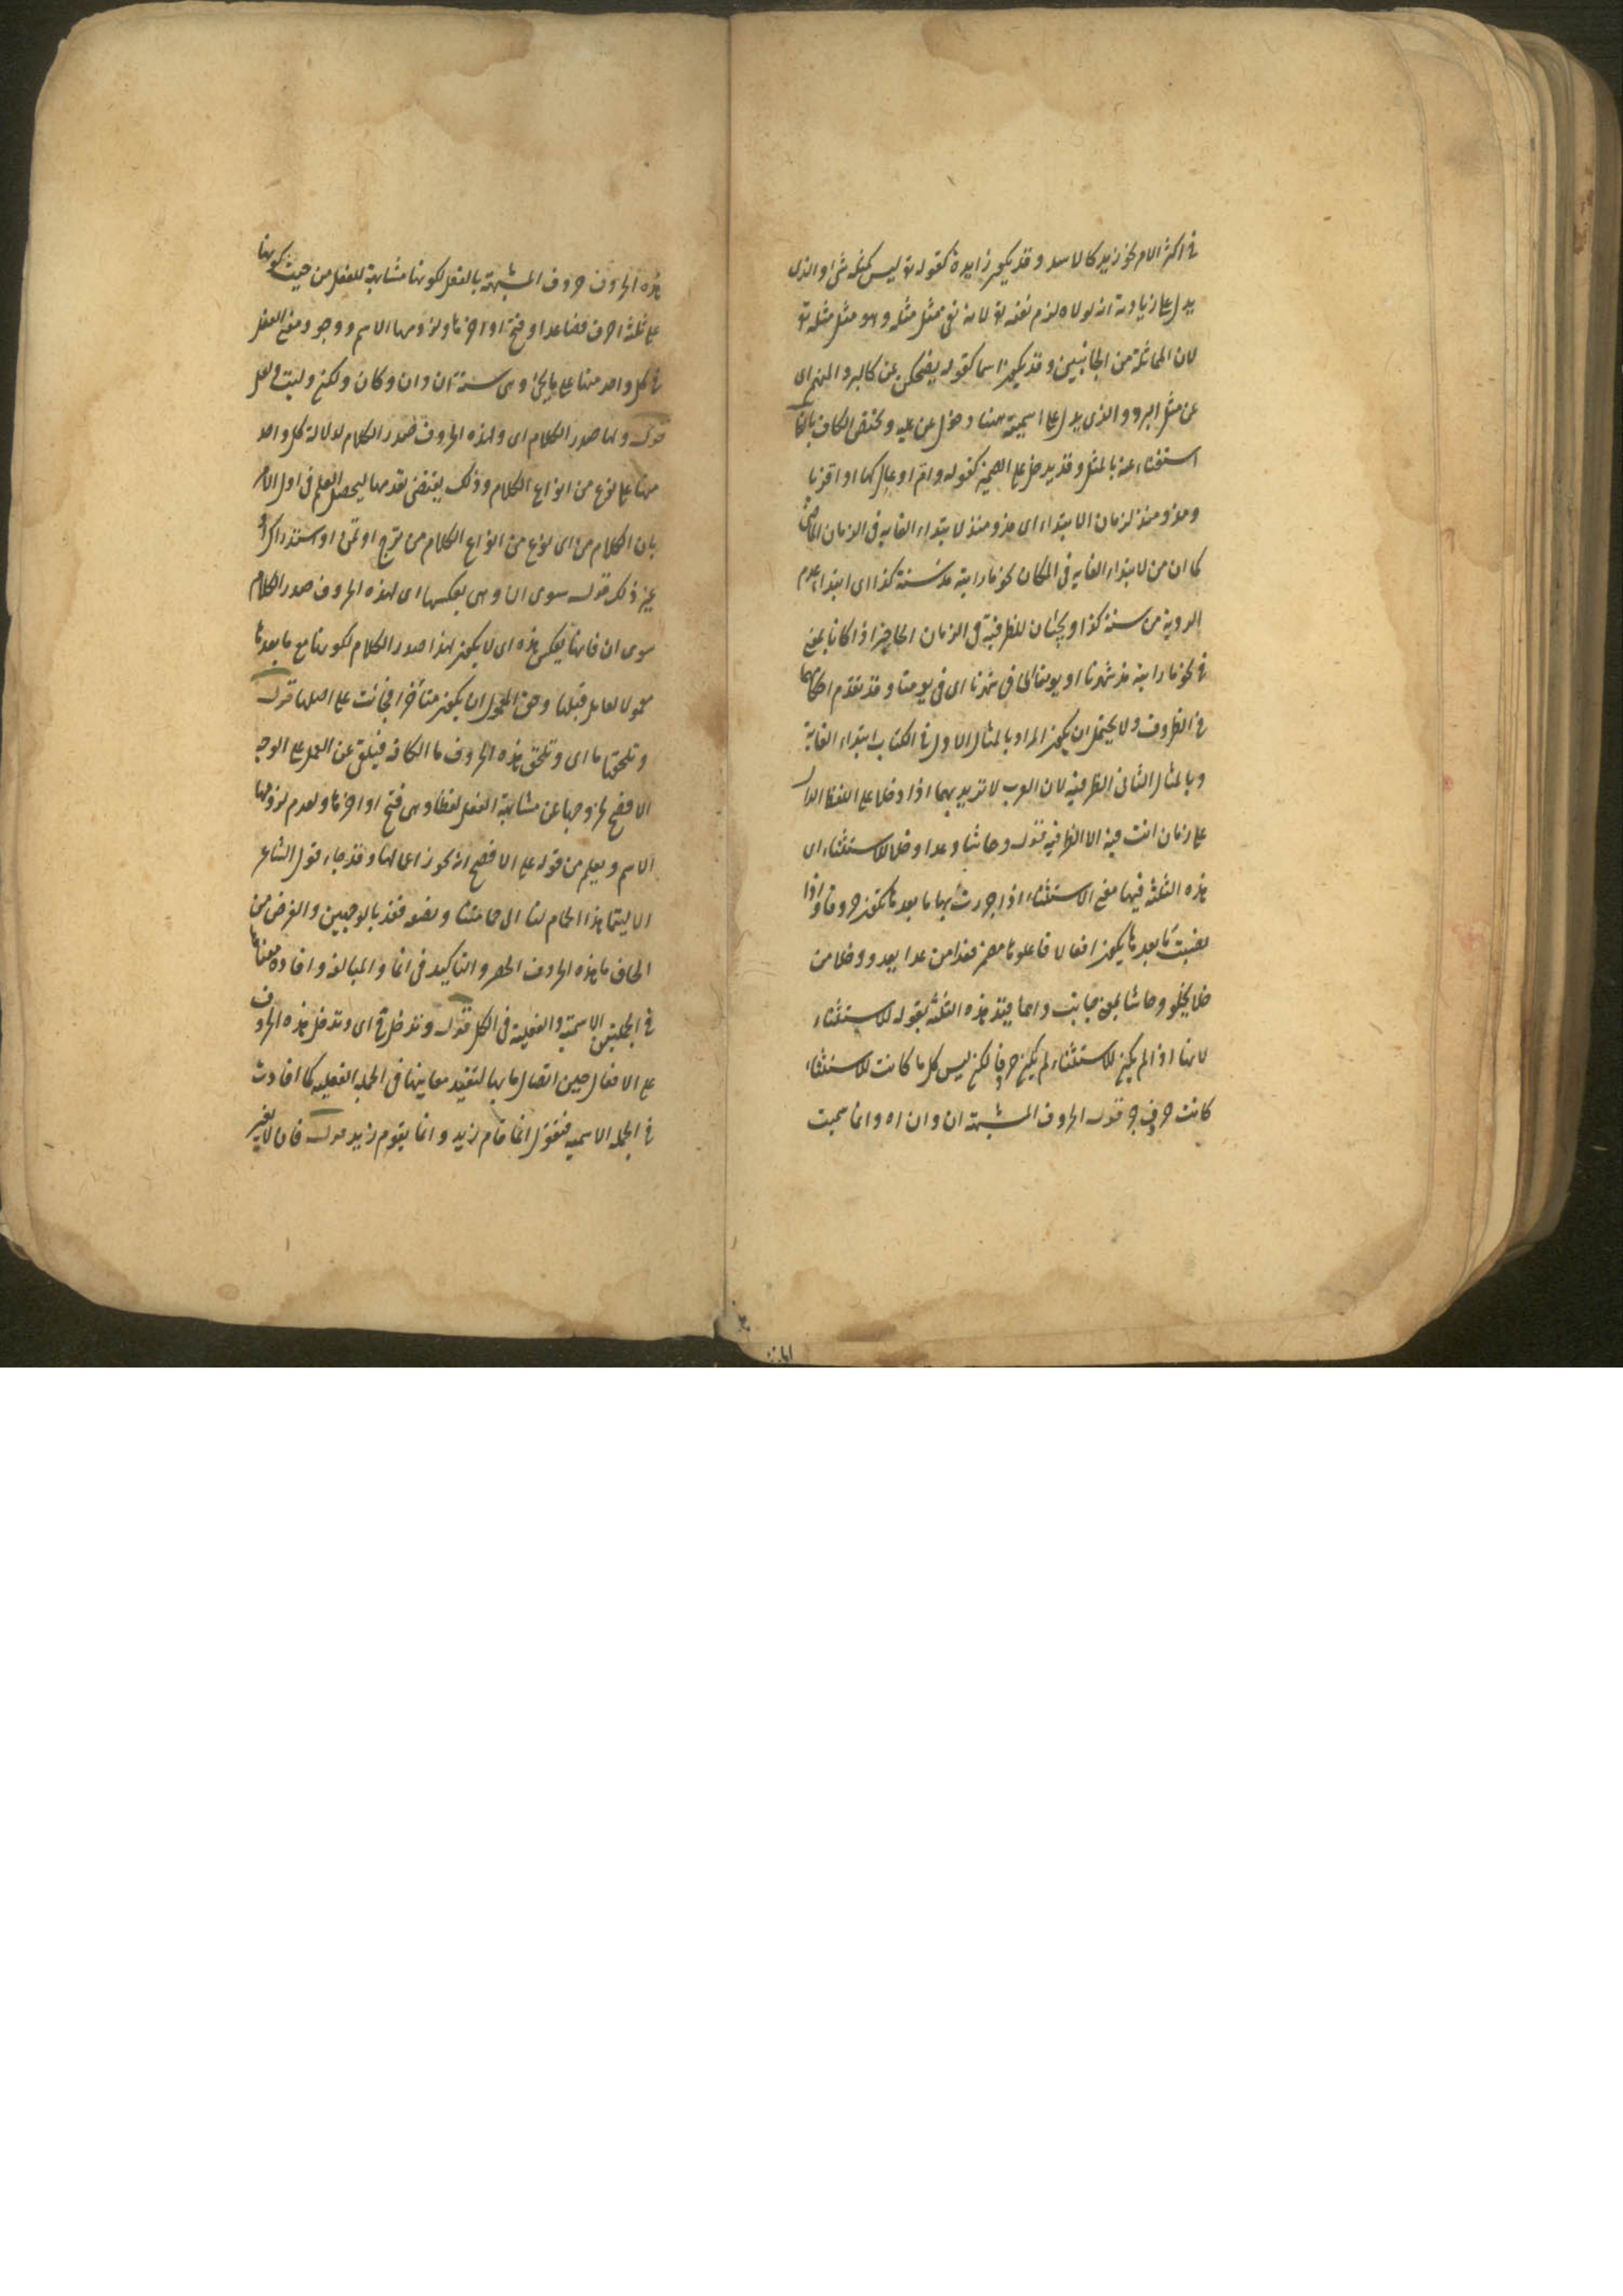 في اكثر الامر نحو زيد كالاسد وقد يكون زايدة كقوله تع ليس كمثله شئ والذي
يدل على زيادته انه لولاه لزم نفيه تع لانه نفى مثل مثله وهو مثل مثله تع
لان المماثلة من الجانبين وقد يكون اسما كقوله يضحكن عن كالبرد المنهم اي
عن مثل البرد والذي يدل على اسميته هنا دخول عن عليه ويختص الكاف بالظاهر
استغناء عنه بالمثل وقد يدخل على الضمير كقوله وام اوعال كها او اقربا
ومذ ومنذ لزمان الابتداء اي مذ ومنذ لابتداء الغاية في الزمان الماضي
كما ان من لابتداء الغاية في المكان نحو ما رايته مذ سنة كذا اي ابتداء عدم
الروية من سنة كذا ويجيئان للظرفية في الزمان الحاضر اذا كانا بمعنى
في نحو ما رايته مذ شهرنا او يومنا اي في شهرنا اي في يومنا وقد تقدم احكامهما
في الظروف ولا يحتمل ان يكون المراد بالمثال الاول في الكتاب ابتداء الغاية
وبالمثال الثاني الظرفية لان العرب لا تريد بهما اذا دخلا على اللفظ الدال
على زمان انت فيه الا الظرفية قوله وحاشا وعدا وخلا للاستثناء اي
هذه الثلثة فيها معنى الاستثناء اذا جررت بها ما بعدها تكون حروفا واذا
نصبت ما بعدها يكون افعالا فاعلوها مضمر فعدا من عدا يعدو وخلا من
خلا يخلو وحاشا بمعنى جانبت وانما قيد هذه الثلثة بقوله للاستثناء
لانها اذا لم يكن للاستثناء لم يكن حرفا لكن ليس كل ما كانت للاستثناء
كانت حروف جر قوله الحروف المشبهة ان وان اه وانما سميت
هذه الحروف حروف المشبهة بالفعل لكونها مشابهة للفعل من حيث كونها
على ثلثة احرف فصاعدا وفتح اواخرها ولزومها الاسم ووجود معنى الفعل
في كل واحد منها على ما يجئ وهي ستة ان وان وكان ولكن وليت ولعل
قوله ولها صدر الكلام اي ولهذه الحروف صدر الكلام لدلالة كل واحد
منها على نوع من انواع الكلام وذلك يقتضى تقدمها ليحصل العلم في اول الامر
بان الكلام من اي نوع من انواع الكلام من ترج او تمن او استدراك او
غير ذلك قوله سوى ان وهي بعكسها اي لهذه الحروف صدر الكلام
سوى ان فانها بعكس هذه اي لا يكون لهذا صدر الكلام لكونها مع ما بعدها
معمولا لعامل قبلها وحق المعمول ان يكون متأخرا فجائت على اصلها قوله
وتلحقها ما اي وتلحق هذه الحروف ما الكافة فيلغى عن العمل على الوجه
الافصح لخروجها عن مشابهة الفعل لفظا وهي فتح اواخرها ولعدم لزومها
الاسم ويعلم من قوله على الافصح انه يجوز اعمالها وقد جاء قول الشاعر
الا ليتما هذا الحمام لنا الى حمامتنا ونصفه فقد بالوجهين والغرض من
الحاق ما بهذه الحروف الحصر والتاكيد في انما والمبالغة وافادة معناها
في الجملتين الاسمية والفعلية في الكل قوله وتدخل ح اي وتدخل هذه الحروف
على الافعال حين اتصال ما بها لتفيد معانيها في الجملة الفعليه كما افادت
في الجملة الاسميه فنقول انما قام زيد وانما يقوم زيد قوله فان لا يغير